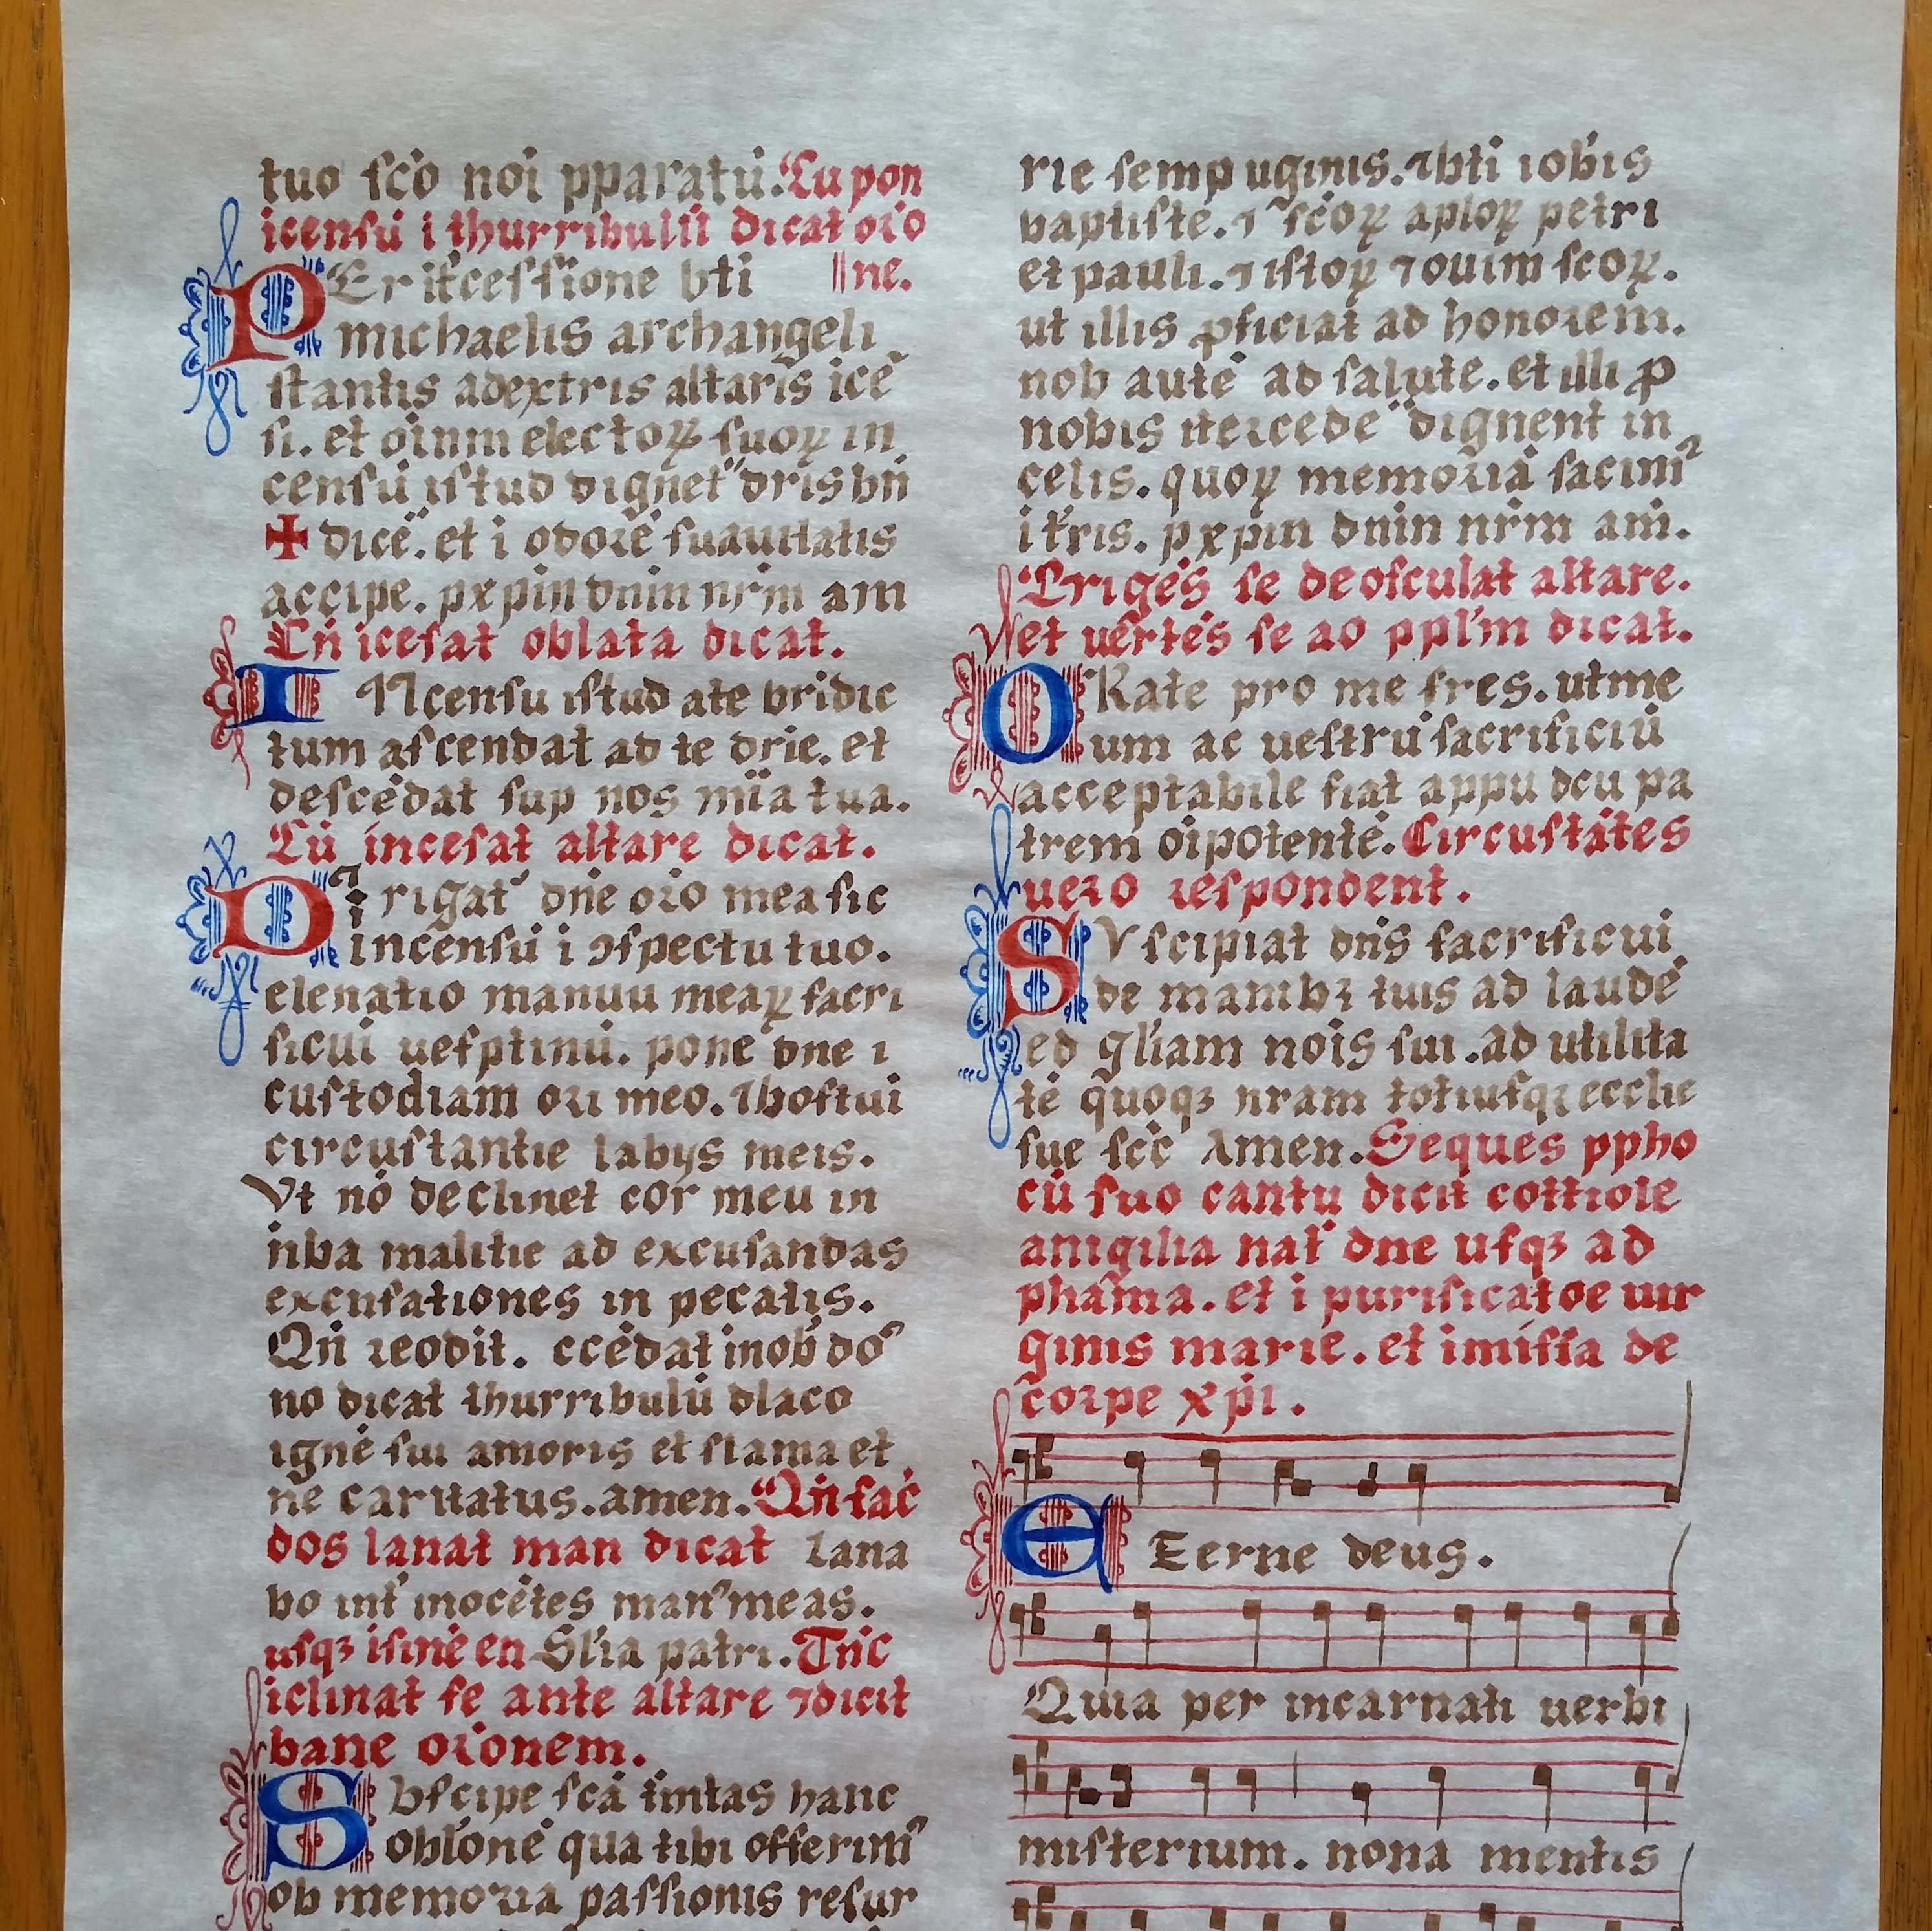 tuo sco noi pparatu. Cu pon
icensu i thurribulu dicat oro
PEr itcessione bti ne.
michaelis archangeli
stantis adextris altaris ice
si. et oinm electoꝝ suoꝝ in
censu istud dignet dris bn
✚ dice. et i odore suauitatis
accipe. p xpin dnin nrm am
Cn icesat oblata dicat.
INcensu istud ate bndic
tum ascendat ad te drie. et
descedat sup nos miia tua.
Cu incesat altare dicat.
Dirigat dne oro mea sic
incensu i ɔspectu tuo.
elenatio manuu meaꝝ sacri
ficui uesptinu. pone dne i
custodiam ori meo. ⁊ hostui
circustantie labijs meis.
Vt no declinet cor meu in
nba malitie ad excusandas
excusationes in pecatis.
Qn reodit. ccedat inob do
no dicat thurribulu dlaco
igne sui amoris et flama et
ne caritatus. amen. Qn sac
dos lanat man dicat Lana
bo int inocetes man meas.
usqꝫ isine en Glia patri. Tnc
iclinat se ante altare ⁊ dicit
hanc oronem.
SVscipe sca tinitas hanc
oblone qua tibi offerim
ob memoria passionis resur
rie semp uginis. ⁊ bti iobis
baptiste. ⁊ scoꝝ aploꝝ petri
et pauli. ⁊ istoꝝ ⁊ ouim scoꝝ.
ut illis ꝓficiat ad honorem.
nob aute ad salute. et illi ꝓ
nobis itercede dignent in
celis. quoꝝ memoria facim
i tris. p xpin dnin nrm am.
Eriges se deosculat altare.
et uertes se ad pplm dicat.
ORate pro me fres. ut me
um ac uestru sacrificiu
acceptabile fiat appu dcu pa
trem oipotente. Circustates
uero respondent.
SVscipiat dns sacrificui
de manibꝫ tuis ad laude
ed gliam nois sui. ad utilita
te quoqꝫ nram totiusqꝫ ecclie
sue scc Amen. Seques ppho
cu suo cantu dicit cottiole
anigilia nat dne usqꝫ ad
phama. et i purificatoe uir
ginis marie. et i missa de
corpe xpi.
ETerne deus.
Quia per incarnati uerbi
misterium. nona mentis